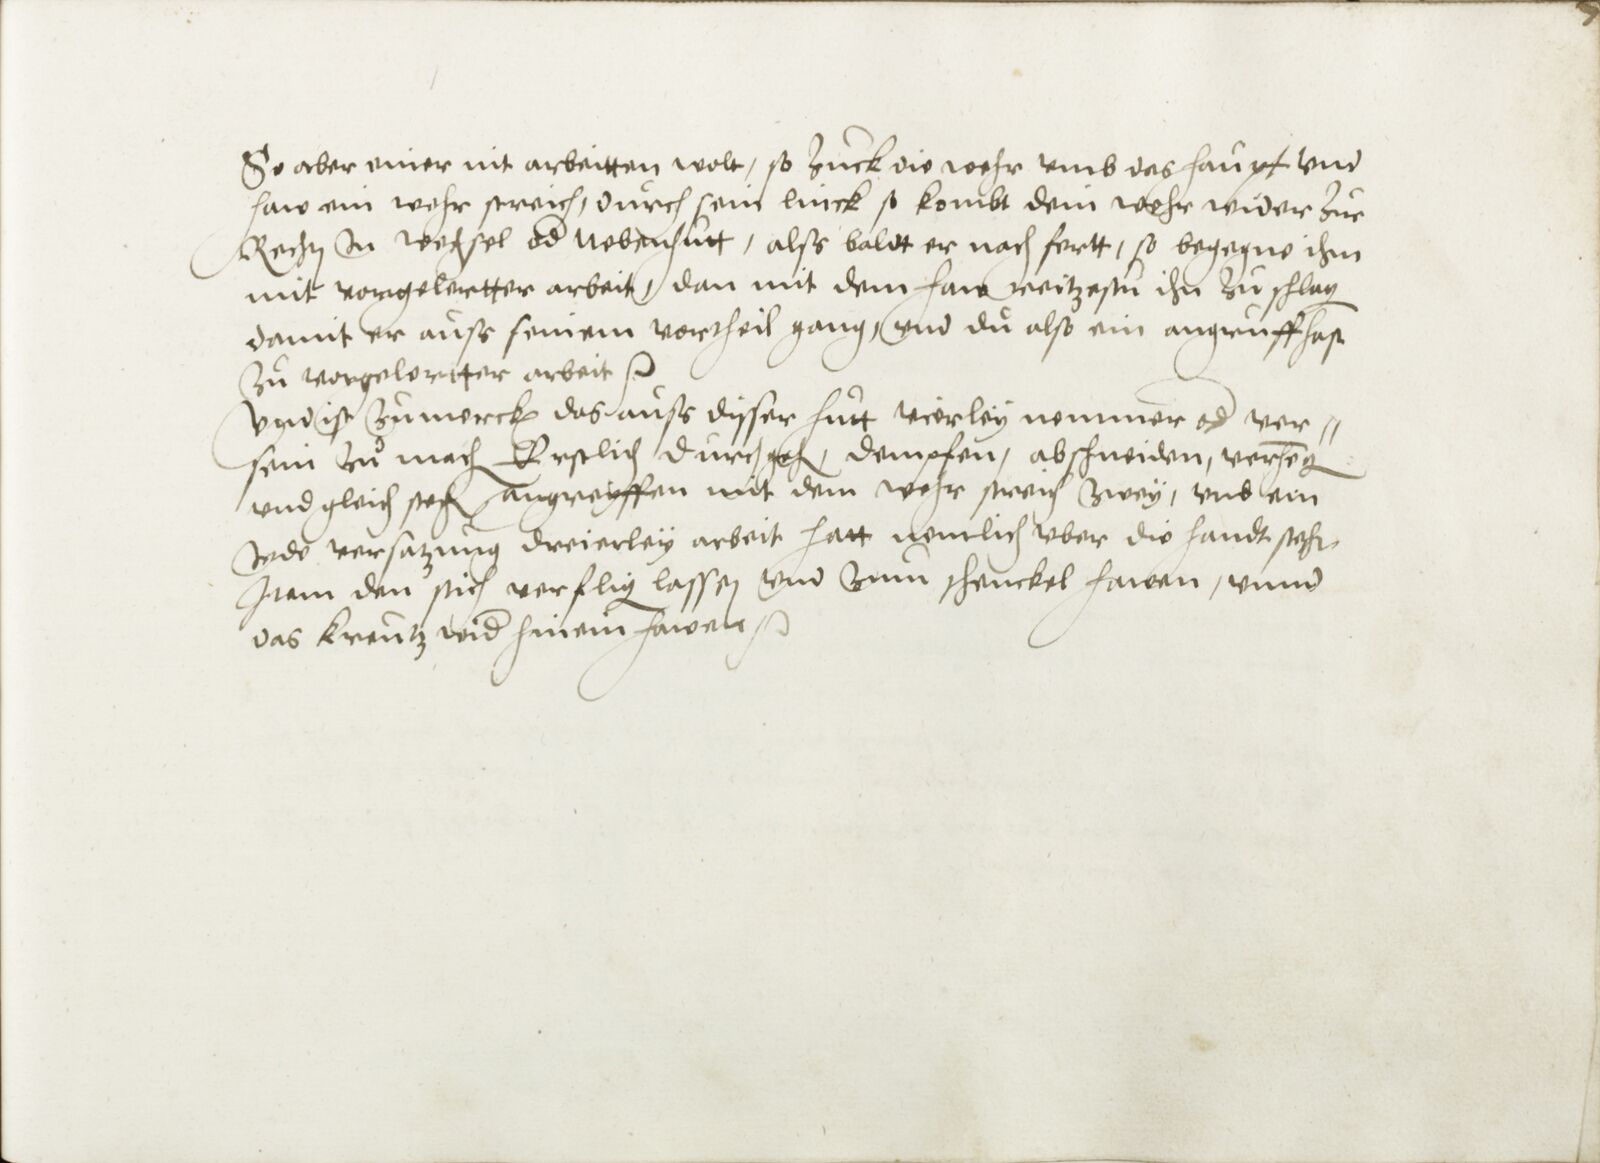 So aber einer nit arbeitten wolt, so zuck die wehr umb das haupt und
haw ein wehr streich, durch sein linck so kombt dein wehr wider zur
Rechen In wechsel od Nebenhutt, alss baldt er nach fertt, so begegne ihm
mit vorgelertter arbeit, dan mit dem haw reitzestu ihn zu schlag
damit er auss seinem vortheil gang, und du also ein angriff hast
zu vorgelertter arbeit
Und ist zumerck das auss disser hutt vierley nemmer od ver//
sein zu mach Erstlich durchgeh, dempfen, abschneiden, verheng
und gleich steh angreyffen mit dem wehr streich zwey, und ein
Jede versatzung dreierley arbeit hatt nemlich uber die handt steh
Item den stich verflig lassen und zum schenckel hawen, unnd
das kreutz wid hinein hawen